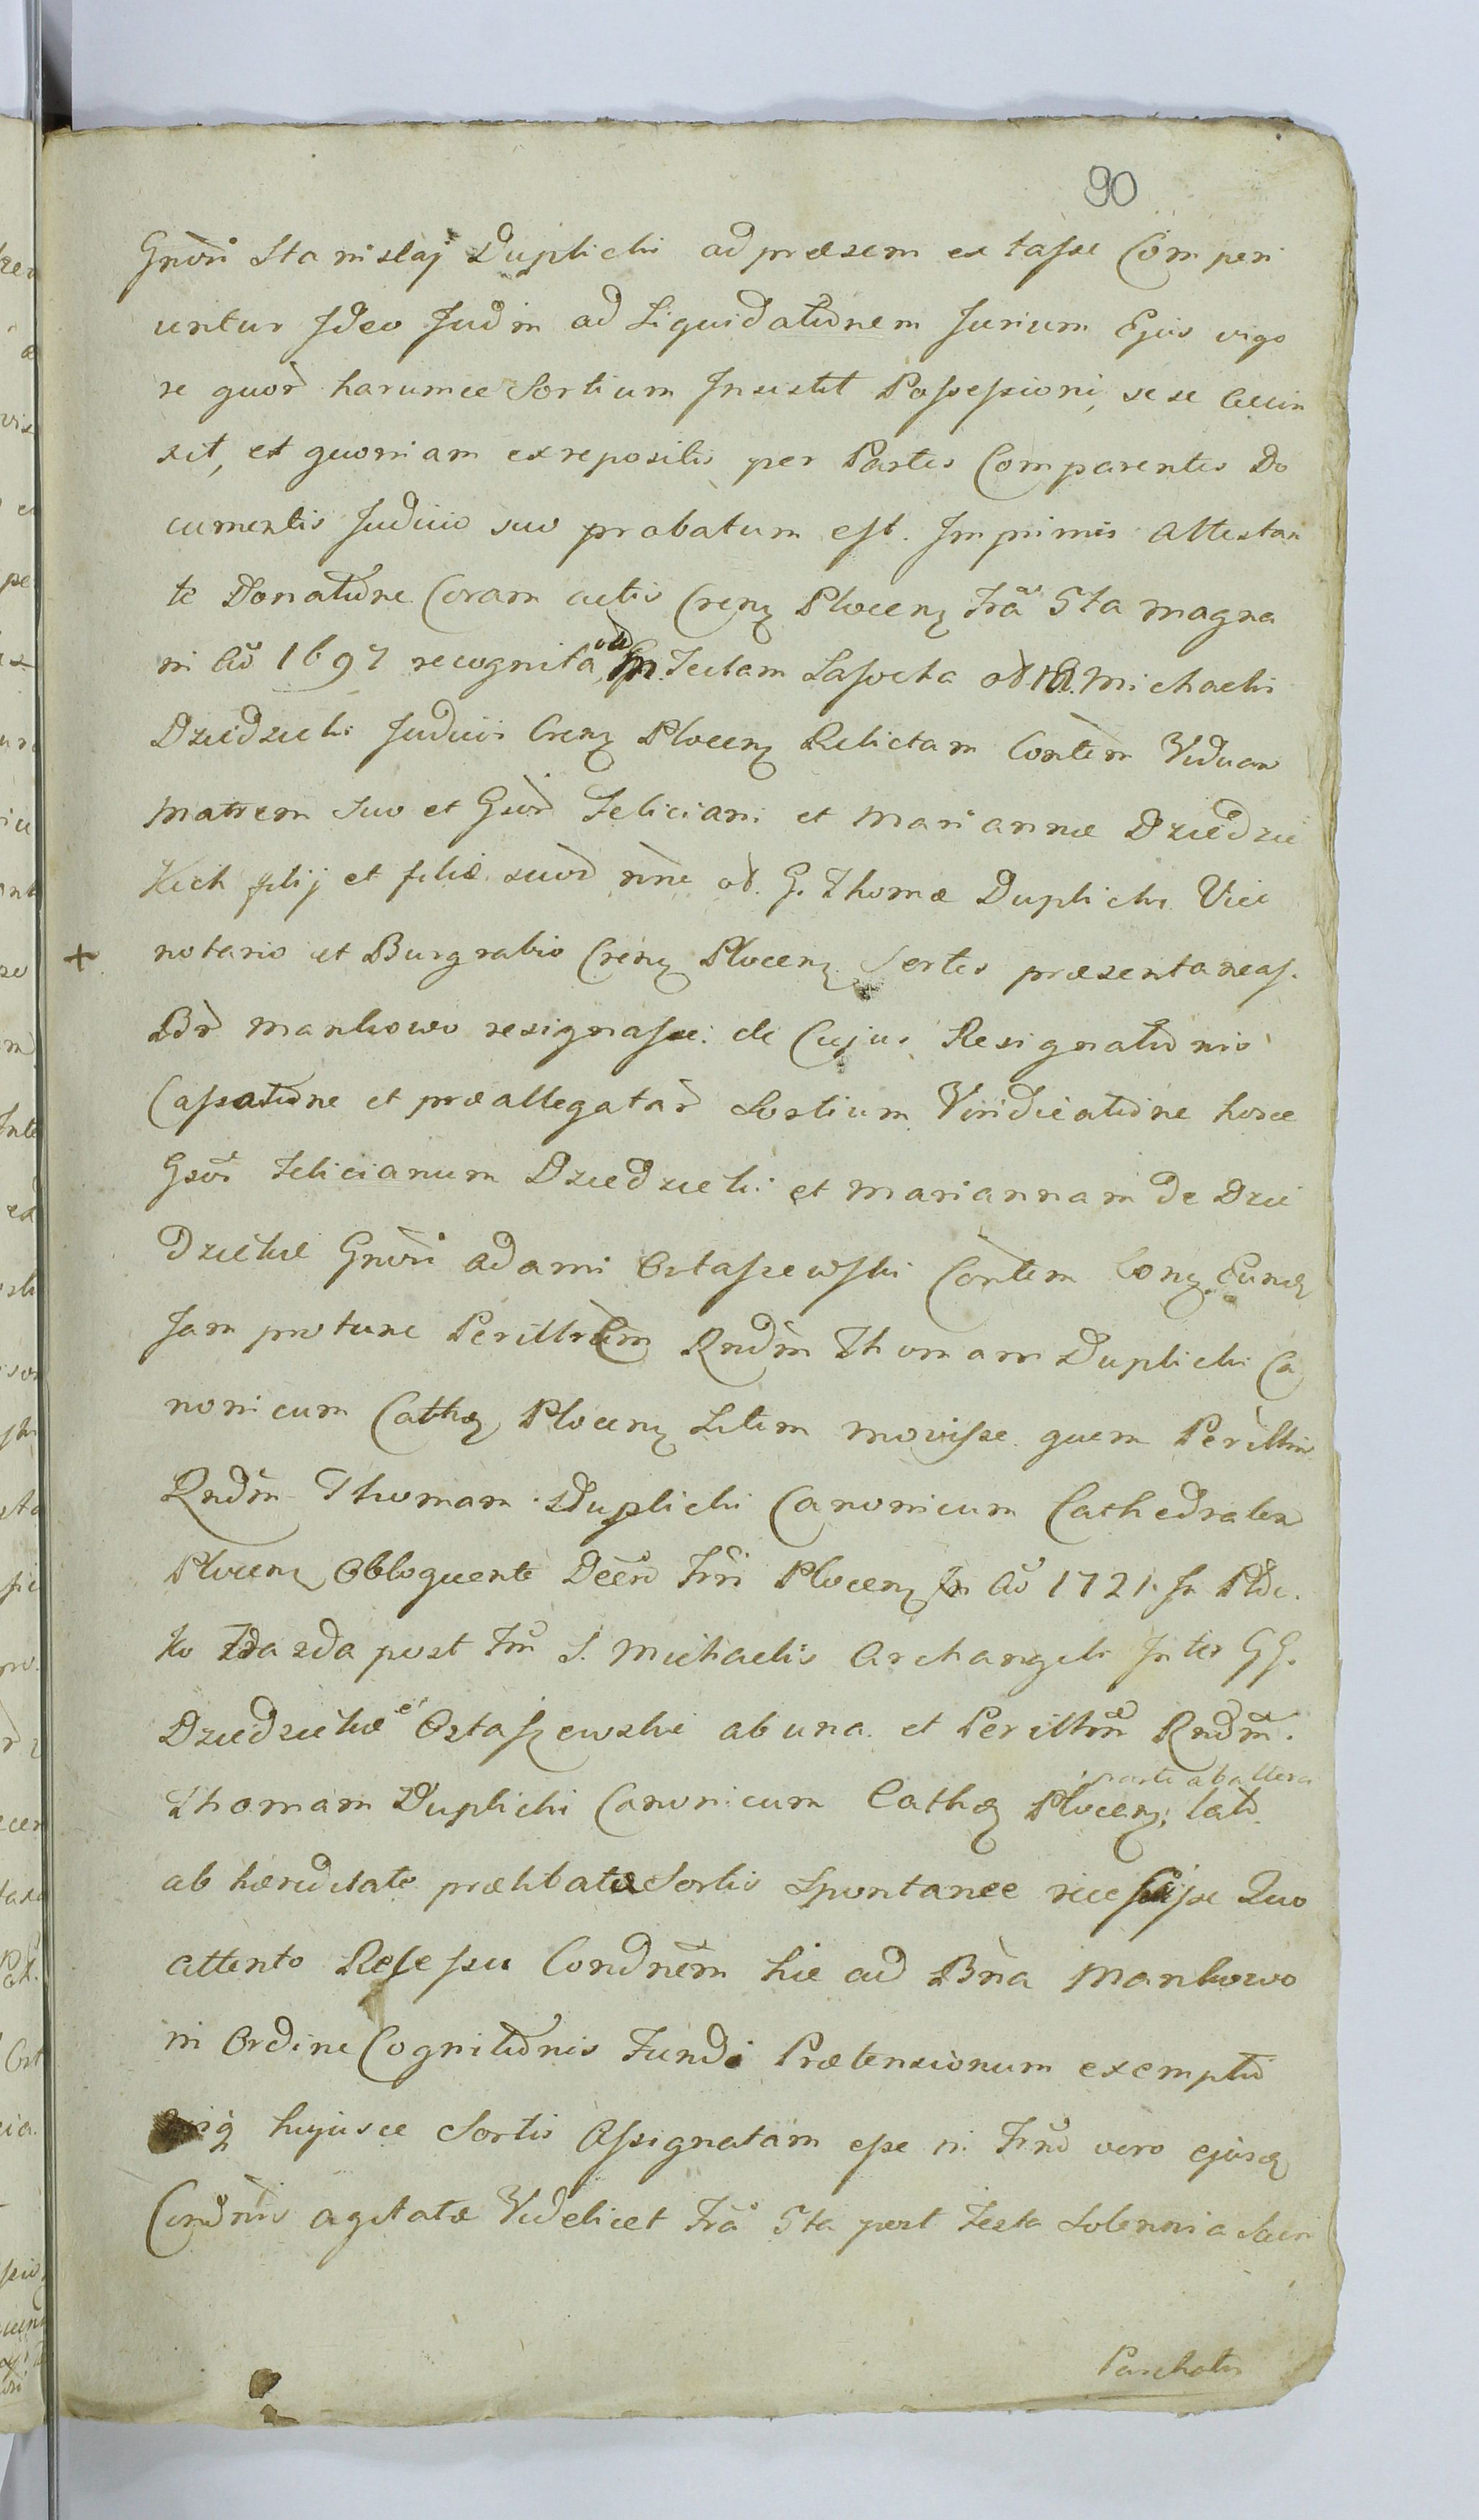 90
Gnõri Stanislaj Duplicki ad præsem extasse Comperi
untur Jdeo Judm ad Liquidatiõnem Jurium Ejus vigo
re quor̃ harumce Sortium Jnsistit Possessioni, sese accin
xit, et quoniam ex repositis per Partes Comparentes Do
cumentis Judicio suo probatum est. Jmprimis Attestan
te Donatiõne Coram actis Crenz Plocenz Fr̃a 5ta magna
in Aõ 1697 recognita Teclam Lasocka Michaelis
Dziedzicki Judicis Crenz Plocenz Relictam Contem Viduam
Matrem suo et Gsor̃ Feliciani et Mariannæ Dziedzic
kich filij et filiæ suor̃ nñe G. Thomæ Duplicki Vice
+ notario et Burgrabio Crenz Plocenz Sortes præsentaneas.
Br̃ Mankowo resignasse: de Cujus Resignatiõnis
Cassatiõne et præallegatar̃ Sortium Vindicatiõne hosce
Gsos Felicianum Dziedzicki et Mariannam de Dzie
dzickie Gnõri Adami Ostaszewski Contem Conz Eunq
Jam protunc Perillrẽm Rndm̃ Thomam Duplicki Ca
nonicum Cathq Plocenz Litem movisse quem Perillm
Rndm̃ Thomam Duplicki Canonicum Cathedralem
Plocenz Obloquente Deẽro Tr̃ri Plocenz In Aõ 1721. In
post S. Michaelis Archangeli Inter GG.
Dziedzickie et Ostaszewskie ab una et Perillrm̃ Rndm̃.
parte ab altera
Thomam Duplicki Canonicum Cathq Plocenz, lato
ab hæreditate prælibatæ Sortis Spontanee recessisse Quo
attento Resessu Condnẽm hic ad Bñа Mankowo
in Ordine Cognitiõnis Fundi Prætensionum
hujusce Sortis Assignatam esse in vero ejusq
Condnis agitatæ Videlicet Fr̃a 5ta post Festa Solennia Sacri
Paschatis